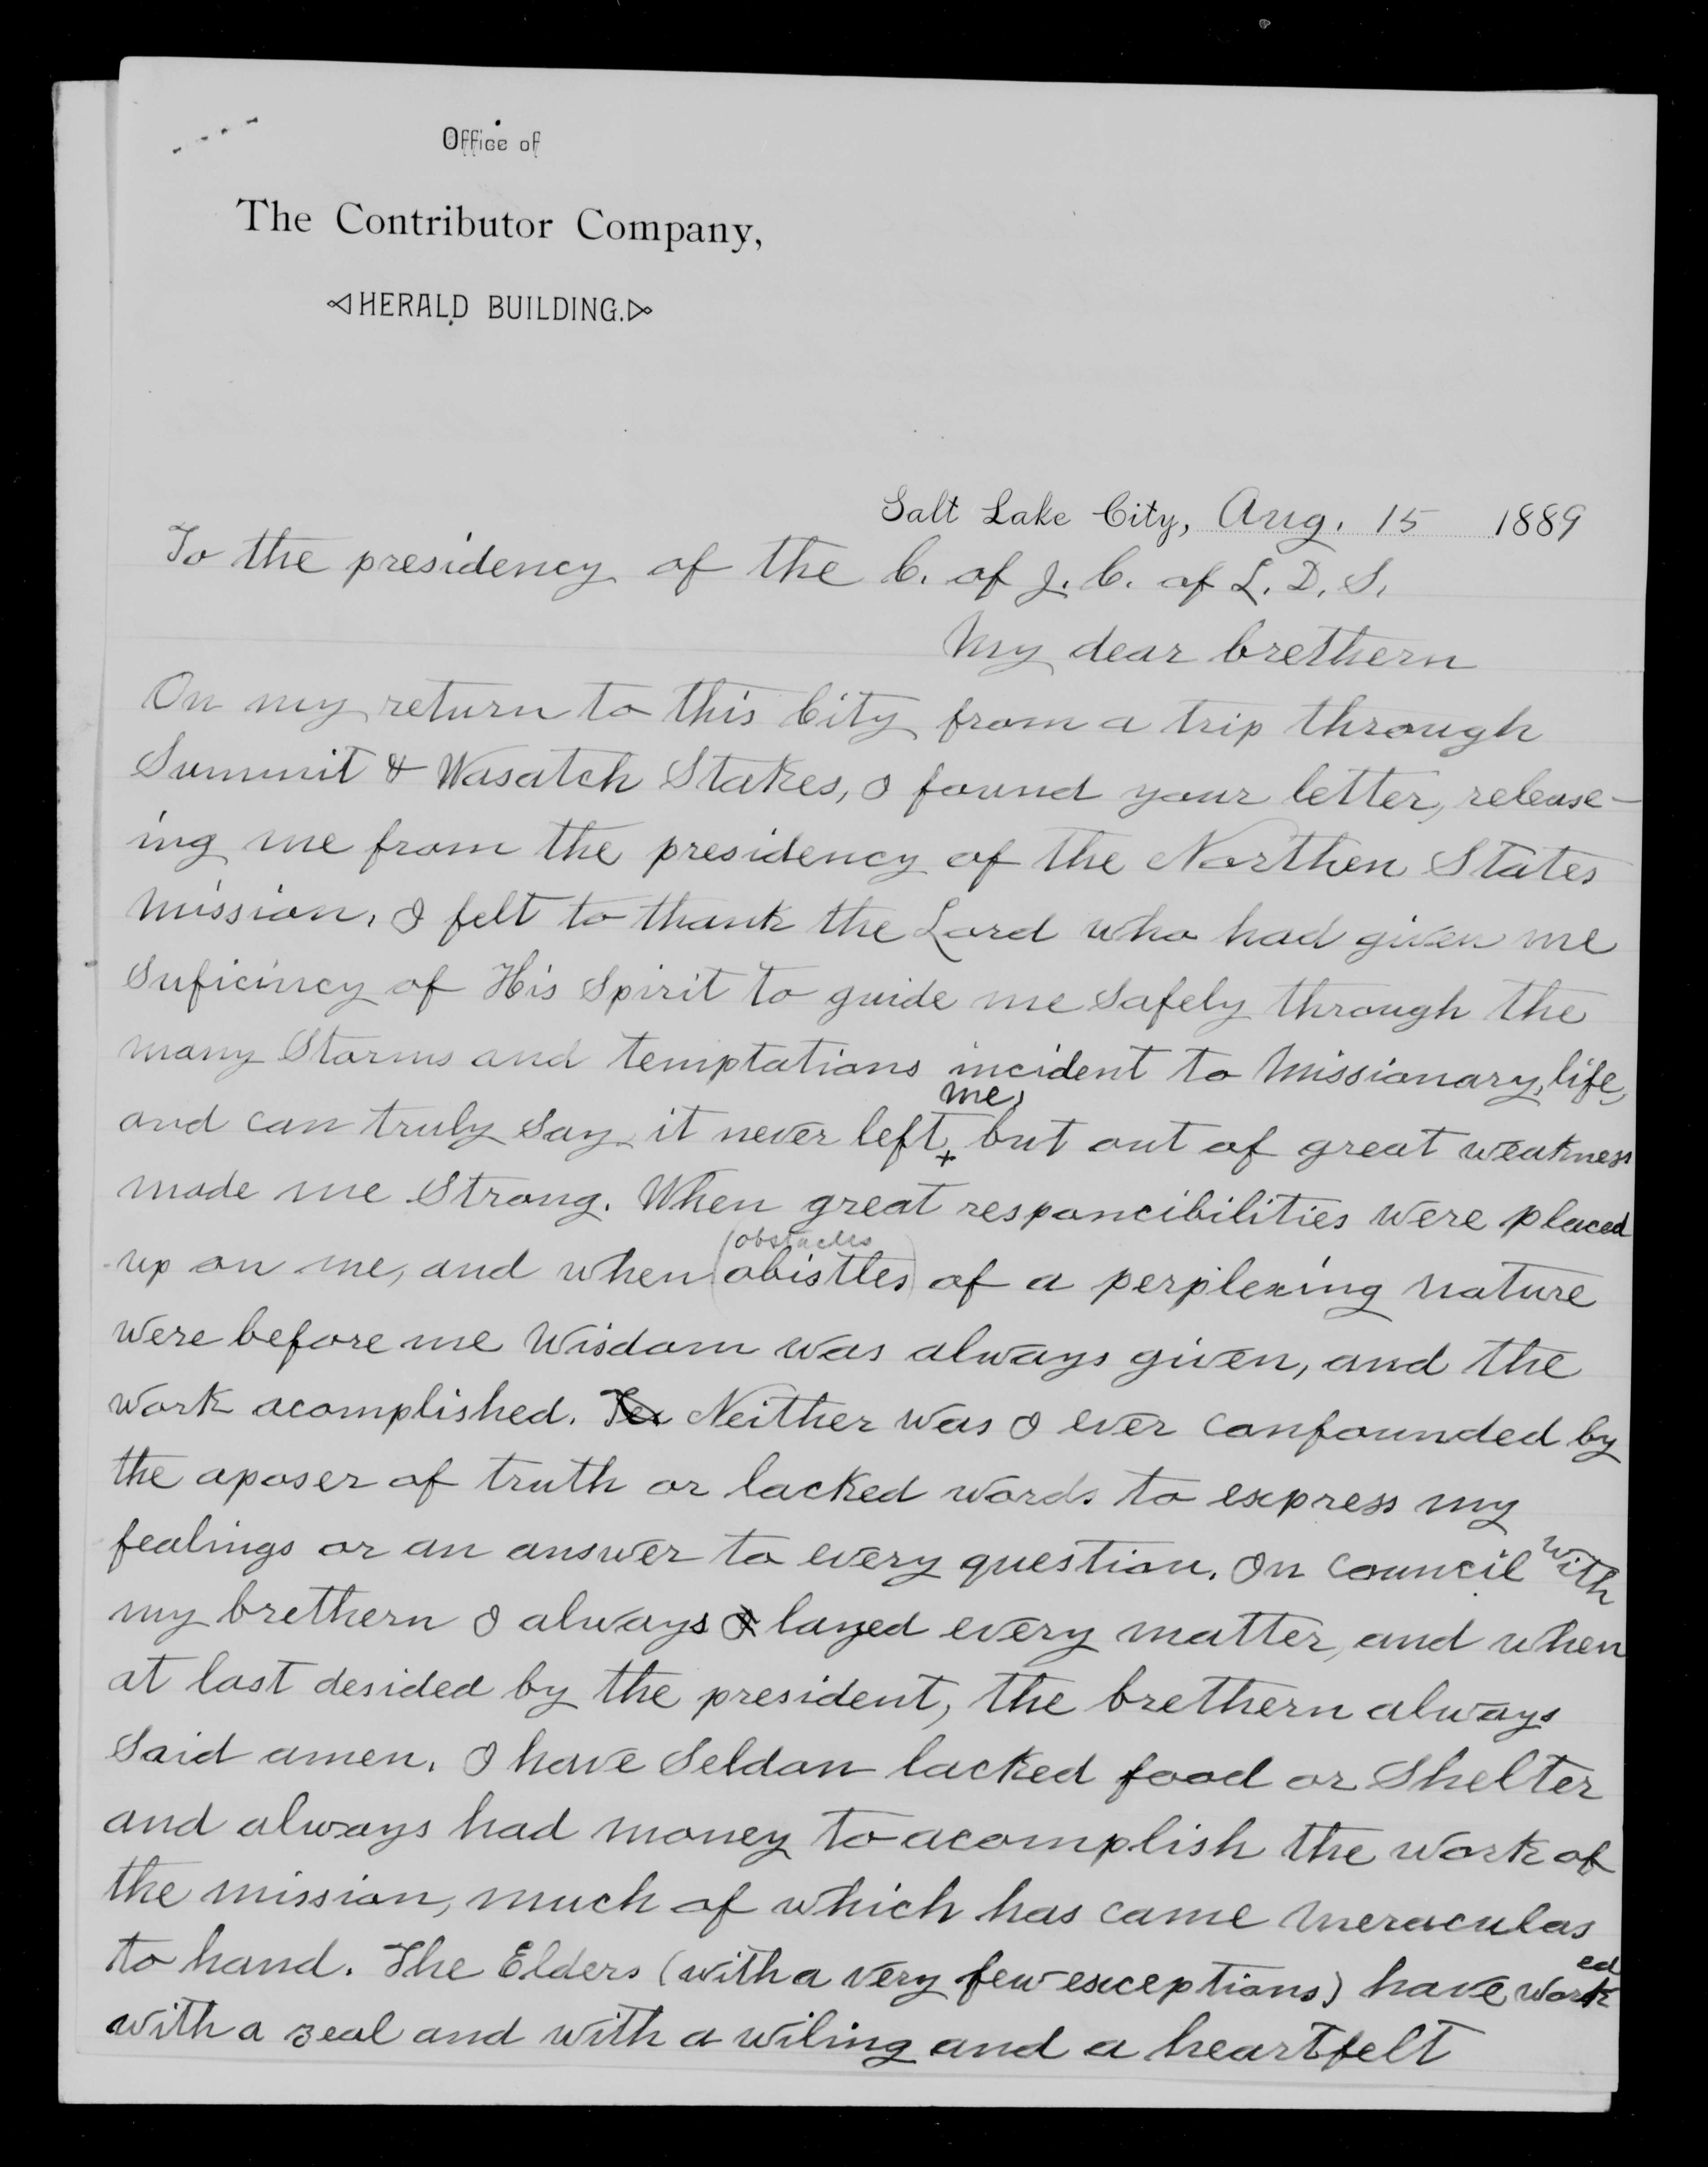 Office of
The Contributor Company,
HERALD BUILDING.
Salt Lake City, Aug. 15 1889
To the presidency of the C. of J. C. of L. D. S.
My dear brethern
On my return to this City from a trip through
Summit & Wasatch Stakes, I found your letter, release-
ing me from the presidency of the Northen States
Mission, I felt to thank the Lord who had given me
Suficincy of His Spirit to guide me safely through the
many Storms and temptations incident to Missionary life,
me,
and can truly say it never left + but out of great weakness
made me Strong. When great responcibilities were placed
(obstacles)
up on me, and when (obistles) of a perplexing nature
were before me Wisdom was always given, and the
work acomplished. Neither was I ever confounded by
the aposer of truth or lacked words to express my
fealings or an answer to every question. In council with
my brethern I always I layed every matter, and when
at last desided by the president, the brethern always
said amen. I have Seldon lacked food or Shelter
and always had money to acomplish the work of
the mission, much of which has came meraculas
to hand. The Elders (with a very few exceptions) have worked
with a zeal and with a wiling and a heartfelt